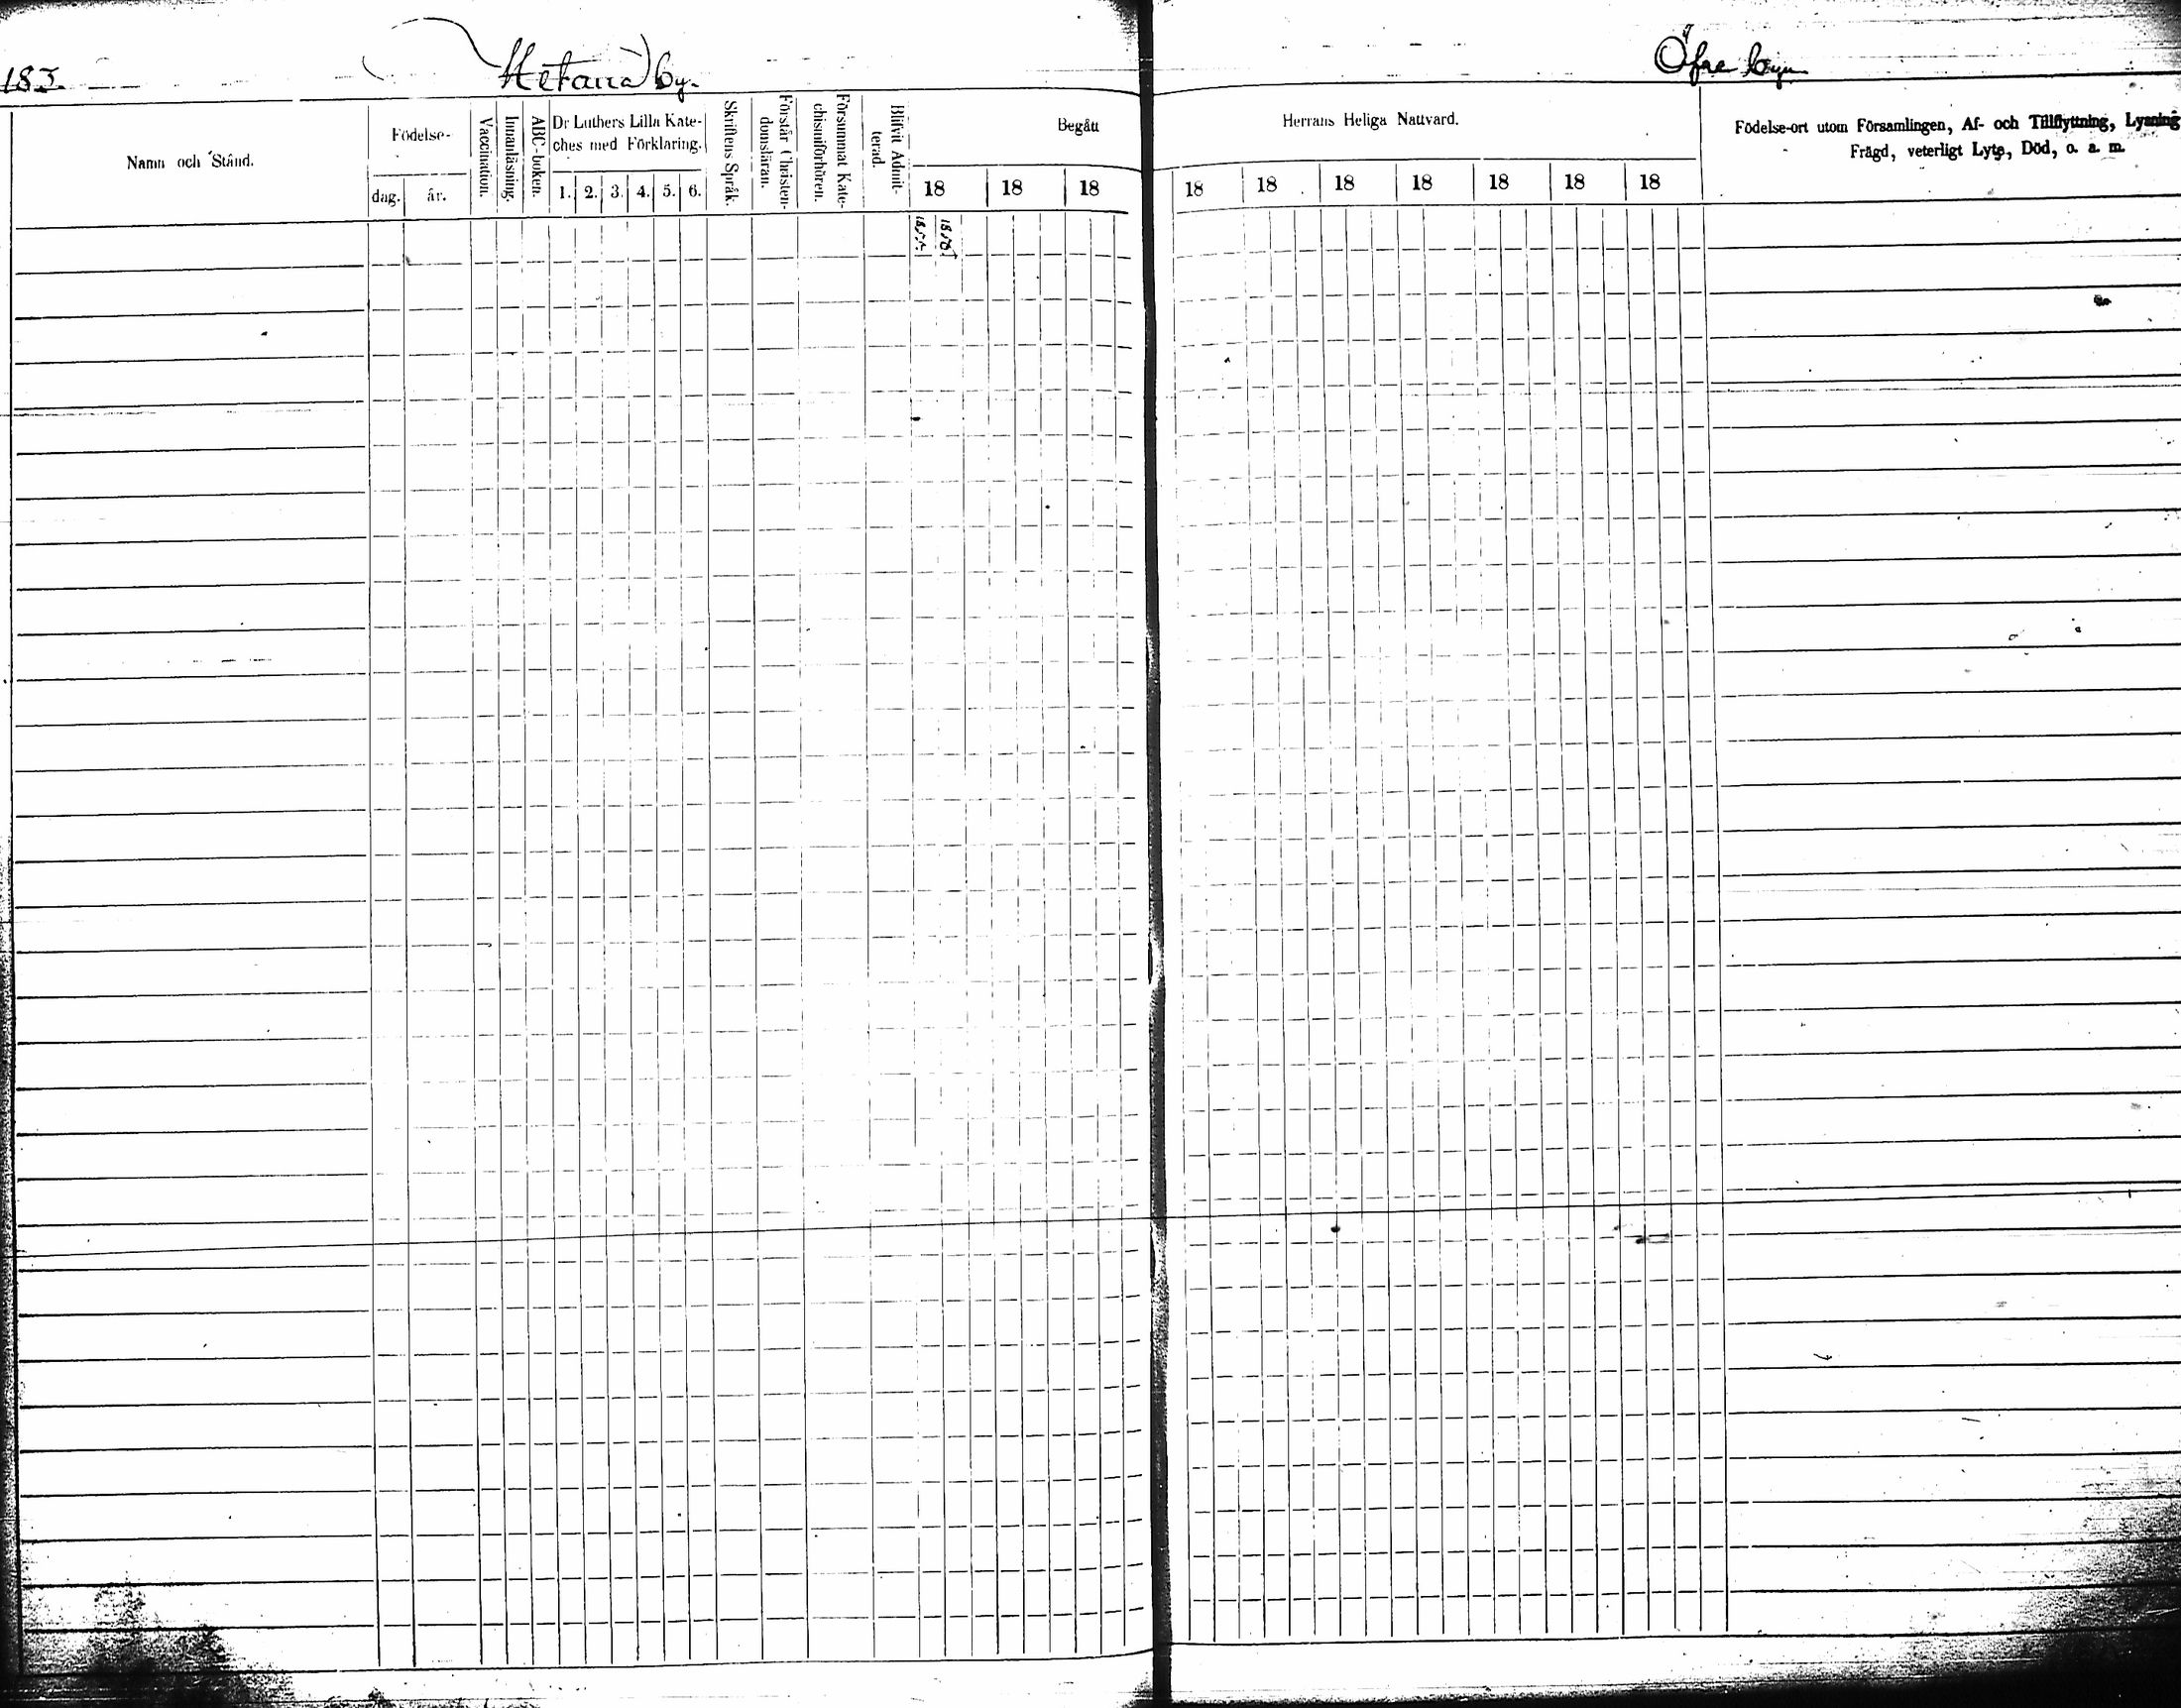 183. Metana by.
Öfre byn
Namn och Stånd.
Födelse-
dag. år.
Vaccination.
Innanläsning.
ABC-boken.
Dr Luthers Lilla Kate-
ches med Förklaring.
1. 2. 3. 4. 5. 6.
Skriftens Språk.
Förstår Christen-
domsläran.
Försummat Kate-
chismiförhören.
Blifvit Admit-
terad.
Begått
18 18 18
Herrans Heliga Nattvard.
18 18 18 18 18 18 18
Födelse-ort utom Församlingen, Af- och Tillflyttning, Lysning
Frägd, veterligt Lyte, Död, o. a. m.
1855